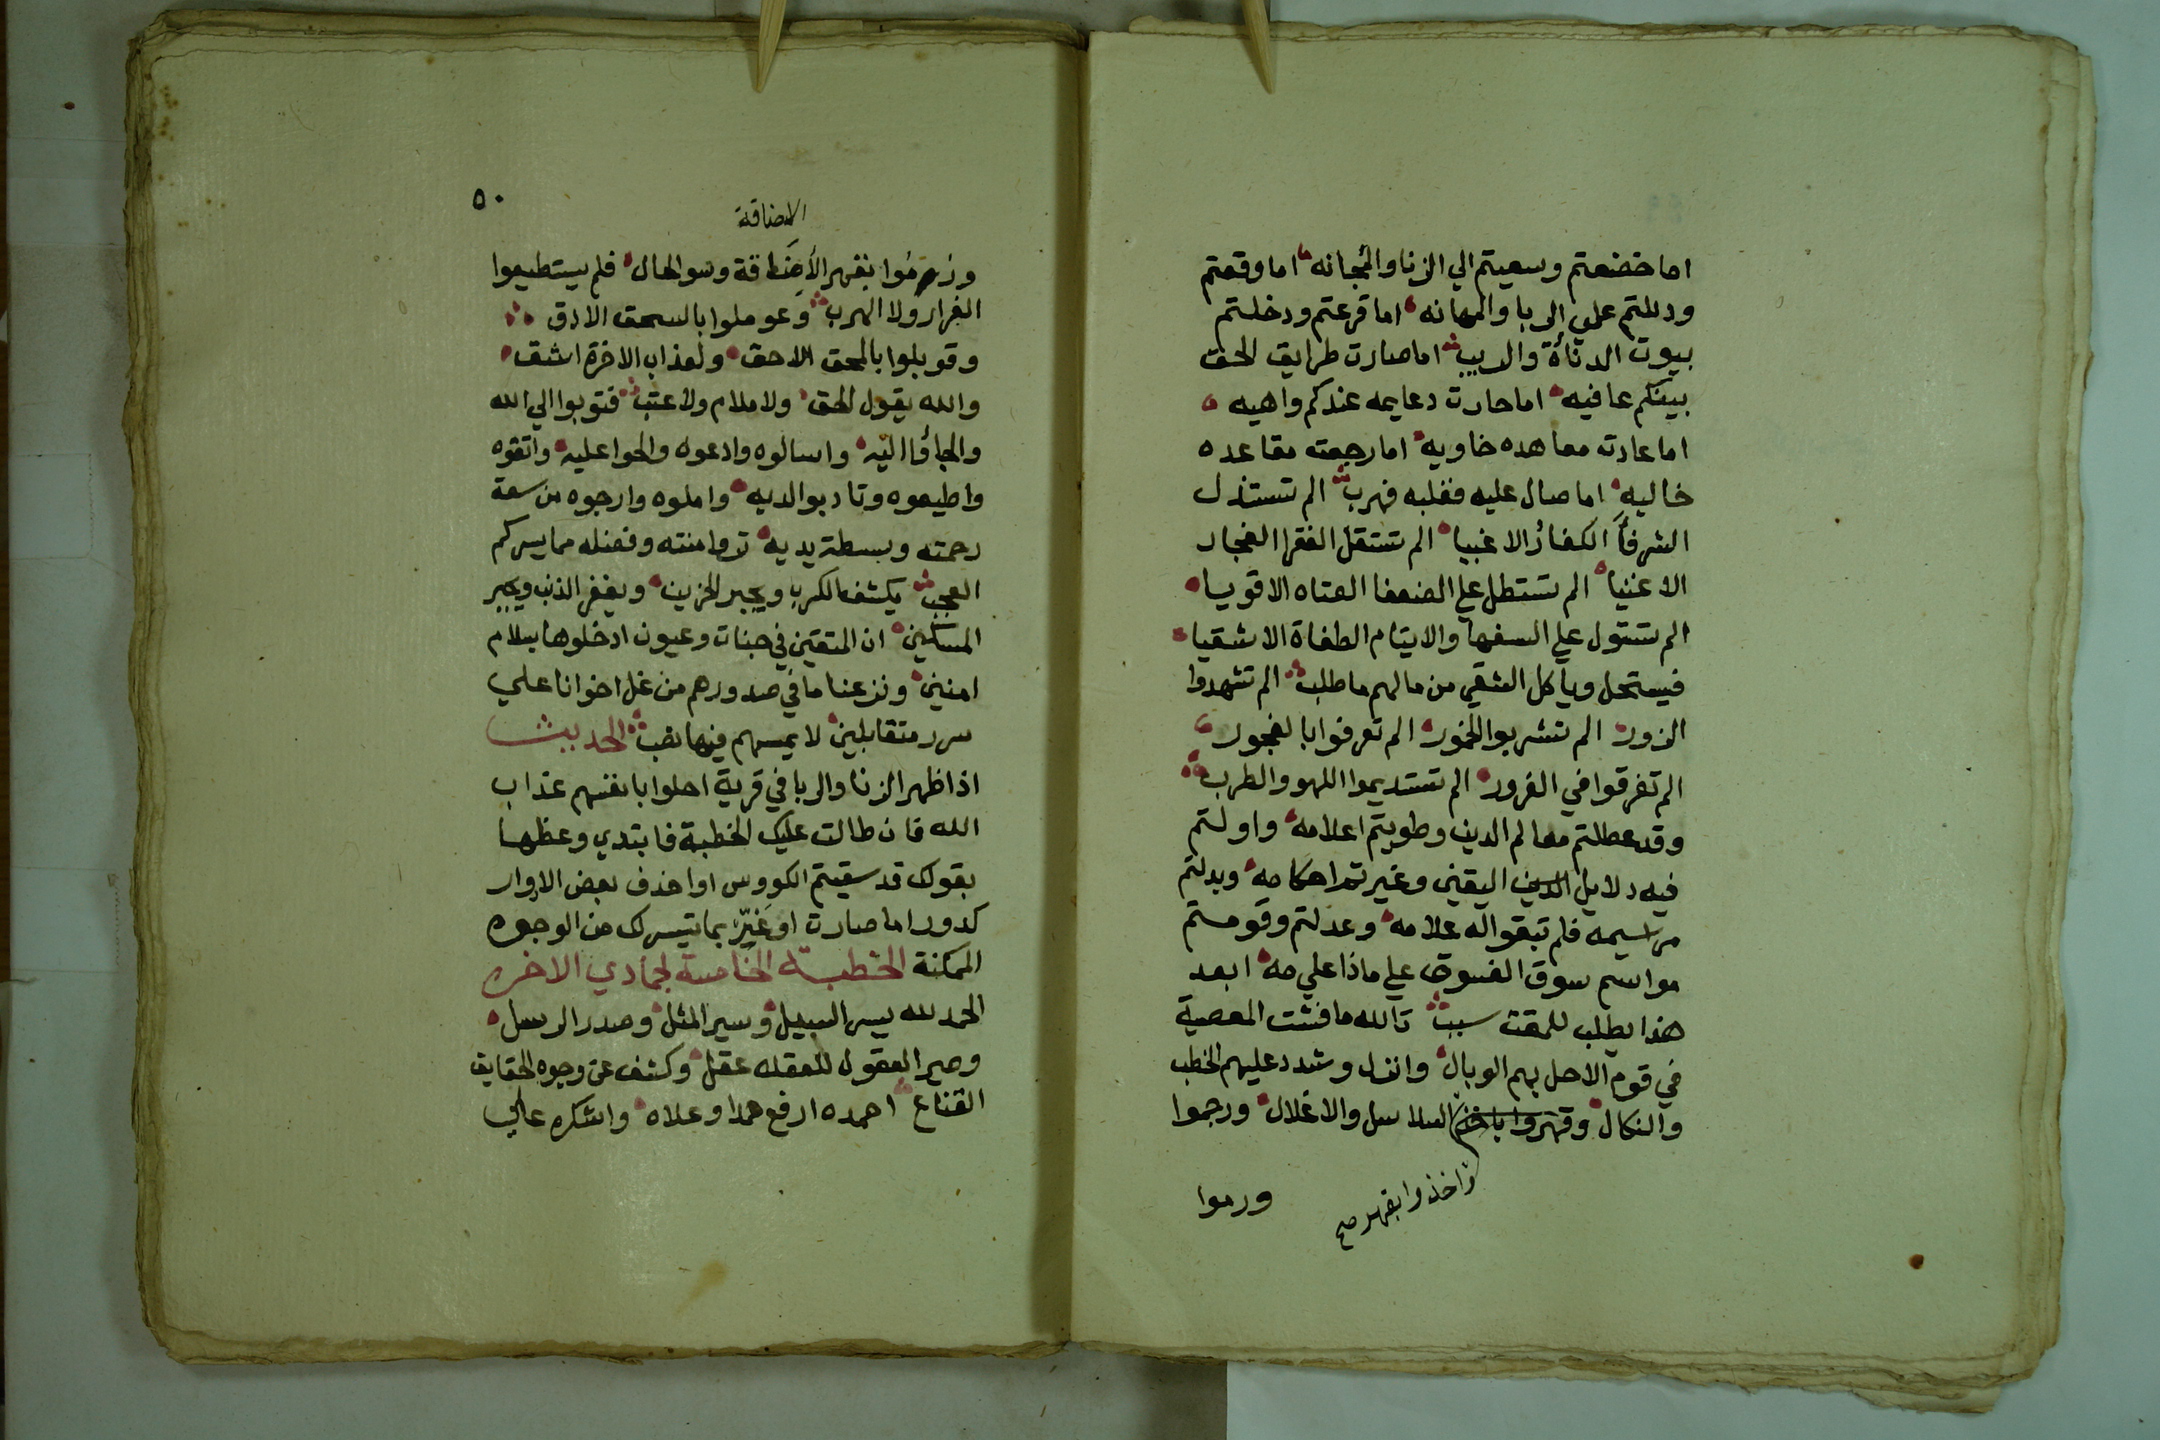 اما خضعتم وسعيتم الي الزنا والمجانه اما وقعتم
ودللتم علي الربا والمهانه اما قرعتم ودخلتم
بيوت الدنأة والريب اما صارت طرايق الحق
بينكم عافيه اما حارت دعايمه عندكم واهيه
اما عادت معاهده خاويه اما رجعته مقاعده
خاليه اما صال عليه فغلبه فهرب الم تستذل
الشرفأ الكفار الاغبيا الم تستقل الفقرا الفجار
الاغنيا الم تستطل علي الضعفا العتاه الاقويا
الم تستول علي السفها والايتام الطغاة الاشقيا
فيستحل وياكل الشقي من مالهم ما طلب الم تشهدوا
الزور الم تشربوا الخمور الم تعرفوا بالفجور
الم تغرقوا في الغرور الم تستديموا اللهو والطرب
وقد عطلتم معالم الدين وطويتم اعلامه واولتم
فيه دلايل اليقين وغيرتم احكامه وبدلتم
مراسيمه فلم تبقوا له علامه وعدلتم وقومتم
مواسم سوق الفسوق علي ماذا علي مه ابعد
هذا يطلب للمقت سبب تالله ما فشت المعصية
في قوم الا حل بهم الوبال وانزل وشدد عليهم الخطب
والنكال السلاسل والاغلال ورجموا
واخذوا بقهر صح
ورموا
٥٠
الاضاقة
وزموا بقهر الأضاقة وسو الحال فلم يستطيعوا
الفرار ولا الهرب وعوملوا بالسحق الادق
وقوبلوا بالمحق الاحق ولعذاب الاخرة اشق
والله يقول الحق ولا ملام ولا عتب فتوبوا الي الله
والجأوا اليه واسالوه وادعوه والحوا عليه واتقوه
واطيعوه وتادبوا لديه واملوه وارجوه من سعة
رحمته وبسطة يديه تروا منته وفضله مما يسركم
العجب يكشف الكرب ويجبر الحزين ويغفر الذنب ويجبر
المسكين ان المتقين في جنات وعيون ادخلوها بسلام
امنين ونزعنا ما في صدورهم من غل اخوانا علي
سرر متقابلين لا يمسهم فيها نصب الحديث
اذا ظهر الزنا والربا في قرية احلوا بانفسهم عذاب
الله فان طالت عليك الخطبة فابتدي وعظها
بقولك قد سقيتم الكووس او احذف بعض الادوار
كدور اما صارت او غيّر بما تيسر لك من الوجوه
الممكنة الخطبة الخامسة لجمادي الاخره
الحمد لله يسر السبيل وسير المثل وصدر الرسل
وصير العقول للعقله عقل وكشف عن وجوه الحقايق
القناع احمده ارفع حمدا وعلاه واشكره عالي